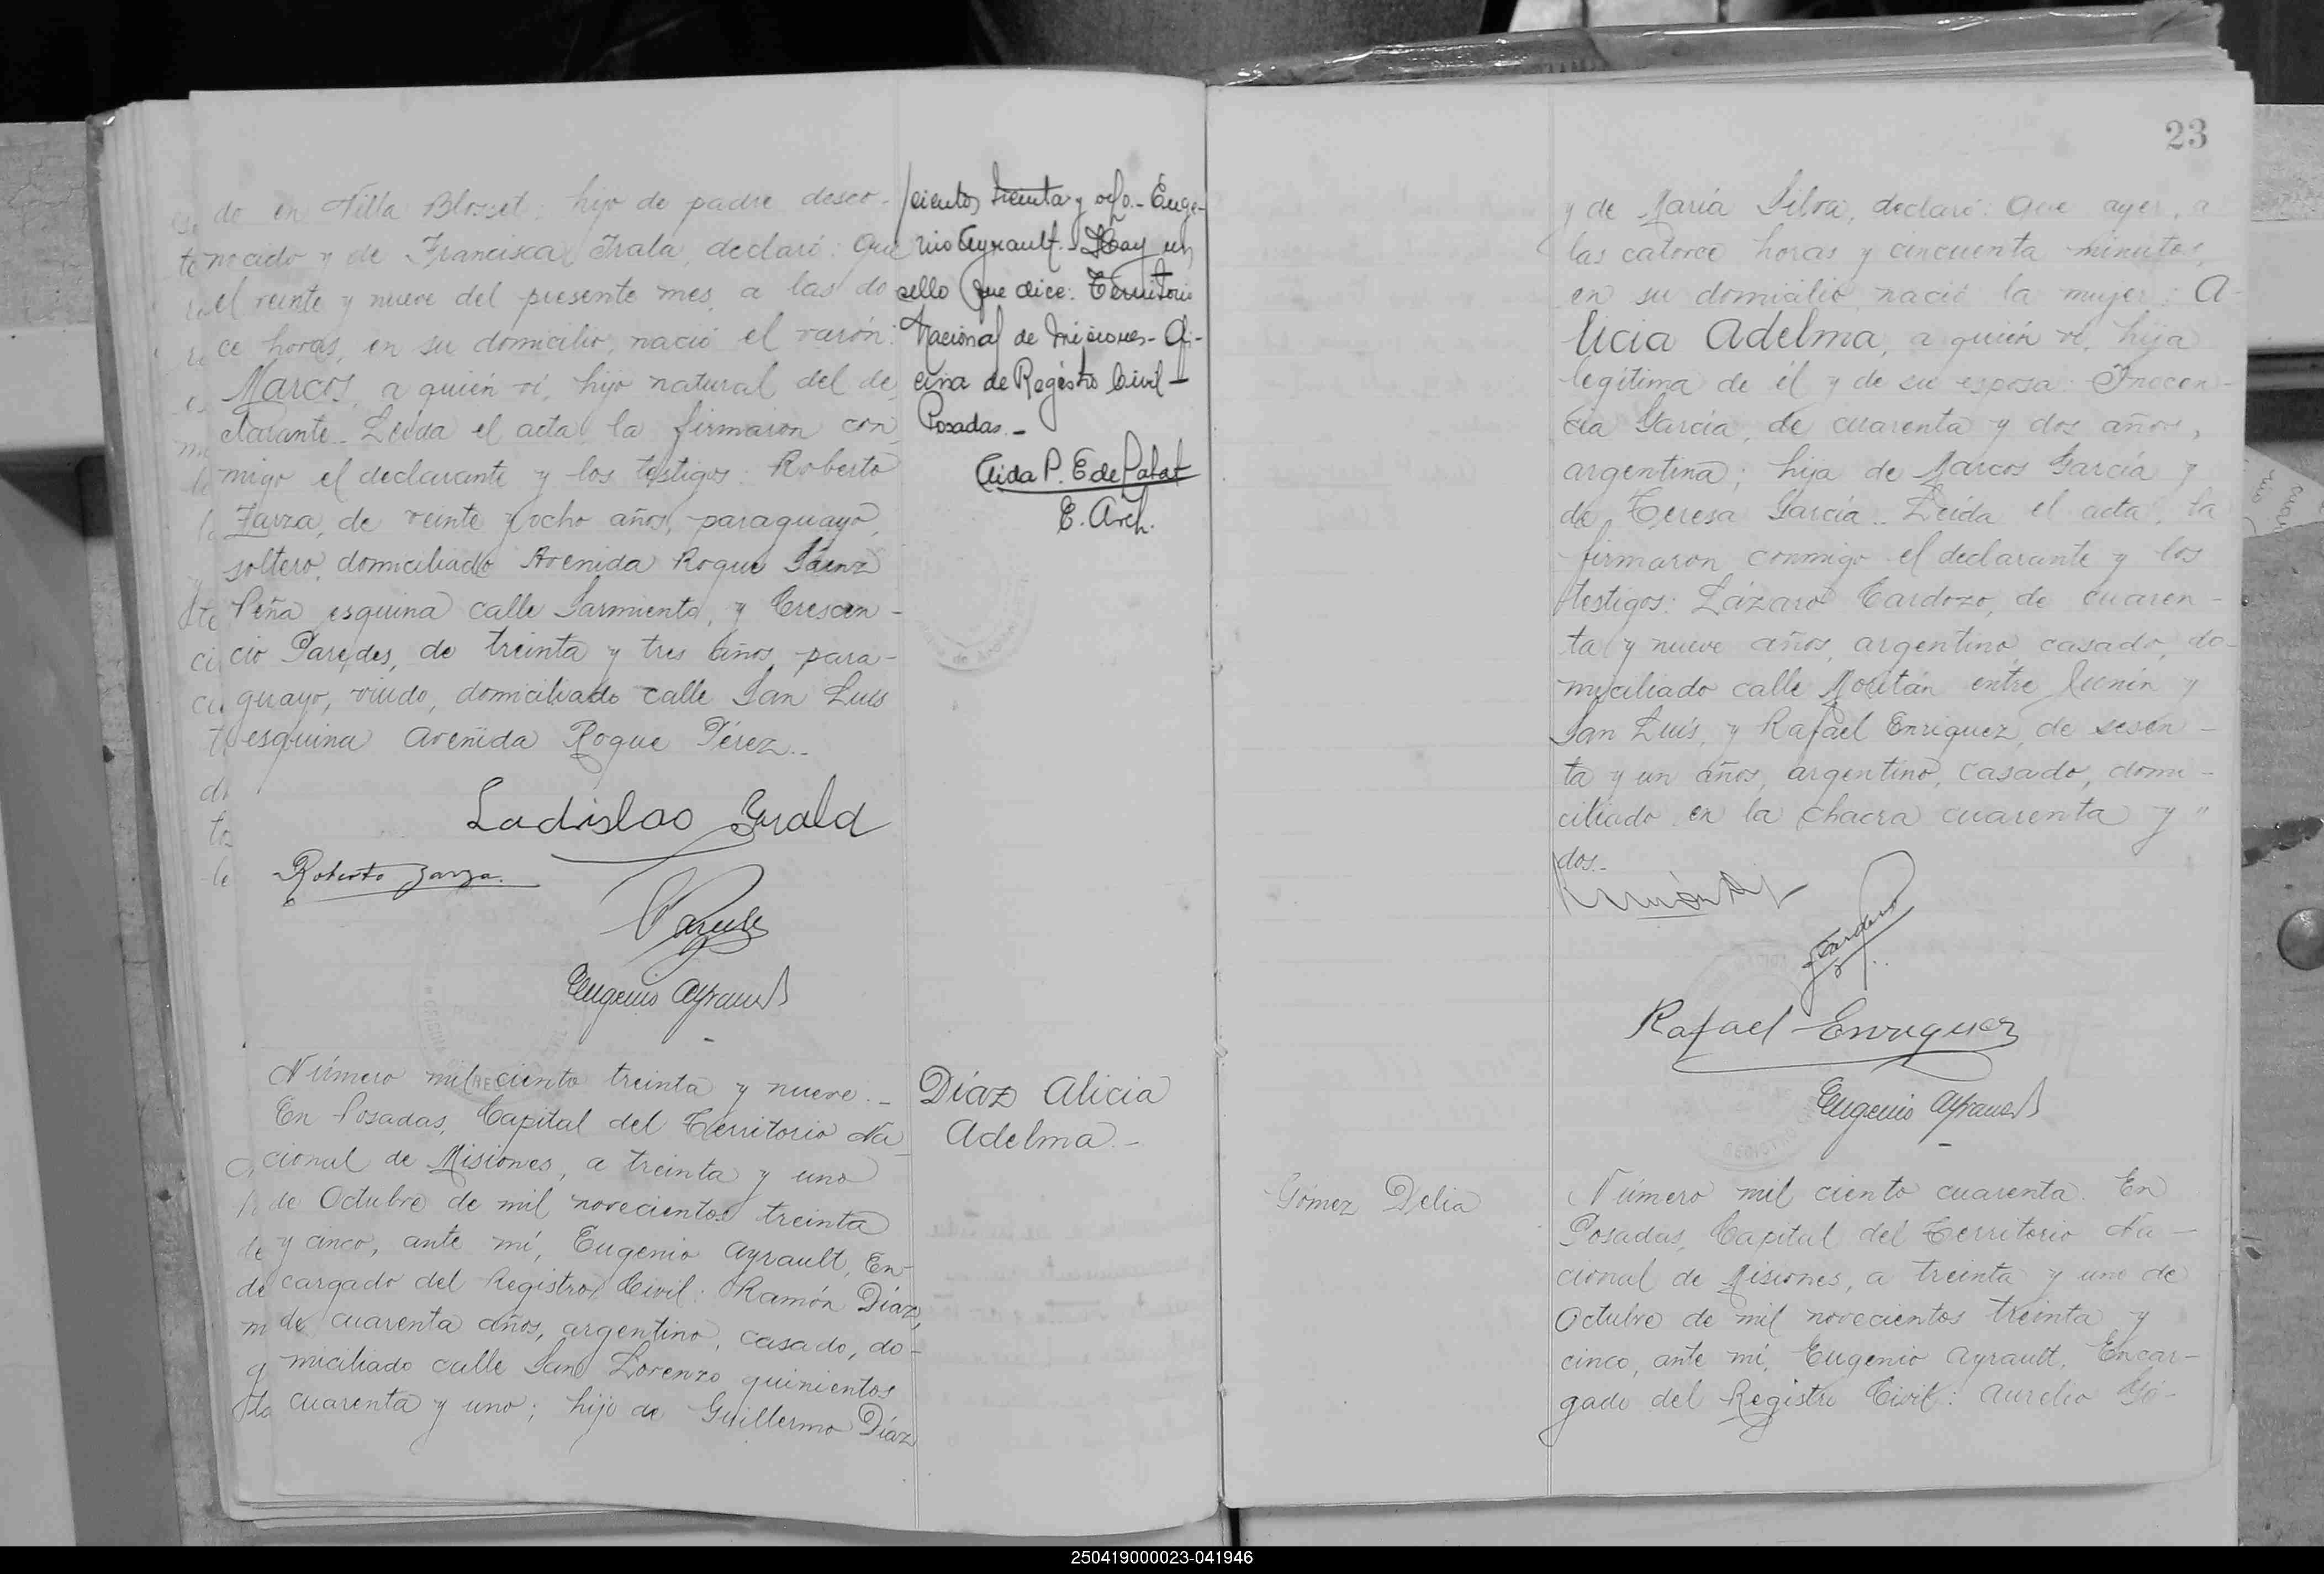 do en Villa Blosset; hijo de padre desco-
nocido y de Francisca Irala, declaró: Que
el veinte y nueve del presente mes, a las do
ce horas, en su domicilio, nació el varón:
Marcos, a quién ví, hijo natural del de
clarante. Leída el acta, la firmaron con
migo el declarante y los testigos: Roberto
Zarza, de veinte y ocho años, paraguayo,
soltero, domiciliado Avenida Roque Sáenz
Peña esquina calle Sarmiento, y Crescen-
cio Paredes, de treinta y tres años, para-
guayo, viudo, domiciliado calle San Luis
esquina Avenida Roque Pérez.-
Ladislao Yrala
Roberto Zarza.
Paredes
Eugenio Ayrault
Número mil ciento treinta y nueve.-
En Posadas, Capital del Territorio Na
cional de Misiones, a treinta y uno
de Octubre de mil novecientos treinta
y cinco, ante mí, Eugenio Ayrault, En-
cargado del Registro Civil: Ramón Díaz,
de cuarenta años, argentino, casado, do-
miciliado calle San Lorenzo quinientos
cuarenta y uno; hijo de Guillermo Díaz
/cientos treinta y ocho.- Euge-
nio Ayrault. Hay un
sello que dice: Territorio
Nacional de Misiones- Ofi-
cina de Registro Civil-
Posadas.-
P. E de
E. Arch.
Díaz Alicia
Adelma.-
23
y de María Silva, declaró: Que ayer, a
las catorce horas y cincuenta minutos,
en su domicilio nació la mujer: A-
licia Adelma, a quién ví, hija
legítima de él y de su esposa: Inocen-
cia García, de cuarenta y dos años,
argentina; hija de Marcos García y
de Teresa García. Leída el acta, la
firmaron conmigo el declarante y los
testigos: Lázaro Cardozo, de cuaren-
ta y nueve años, argentino, casado, do-
miciliado calle Moritán entre Junín y
San Luis, y Rafael Enriquez, de sesen-
ta y un años, argentino, casado, domi-
ciliado en la chacra cuarenta y "
dos.-
Cardozo
Rafael Enriquez
Eugenio Ayrault
Gómez Delia
Número mil ciento cuarenta. En
Posadas, Capital del Territorio Na-
cional de Misiones, a treinta y uno de
Octubre de mil novecientos treinta y
cinco, ante mí, Eugenio Ayrault, Encar-
gado del Registro Civil: Aurelio Gó-
250419000023-041946